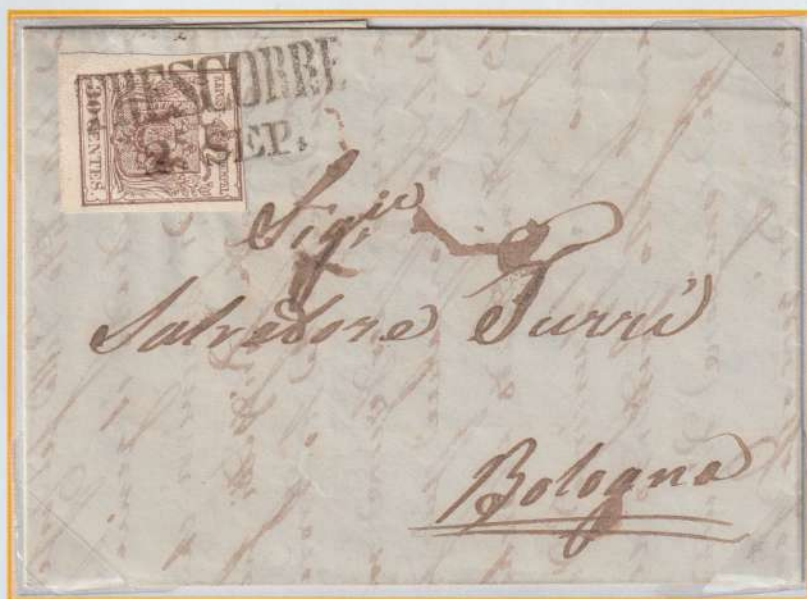 TRESCORRE
2 SEP.
30 CENTES.
Sig.ri
Salvadore Turri
Bologna